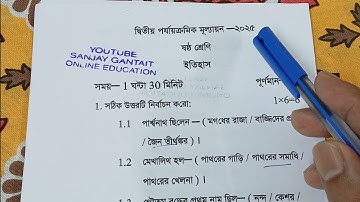 দ্বিতীয় পর্যায়ক্রমিক মূল্যায়ন —২০২৫
YOUTUBE
SANJAY GANTAIT
ONLINE EDUCATION
ষষ্ঠ শ্রেণি
ইতিহাস
সময়— 1 ঘন্টা 30 মিনিট
পূর্ণমান-
1. সঠিক উত্তরটি নির্বাচন করো:
1×6=6
1.1 পার্শ্বনাথ ছিলেন— ( মগধের রাজা / বাজ্জিদের
/ জৈন তীর্থঙ্কর ) ।
1.2 মেগালিথ হল— ( পাথরের গাড়ি / পাথরের সমাধি /
পাথরের খেলনা ) ।
1.3 গৌতম বুদ্ধের প্রথম নাম ছিল— ( নন্দ /